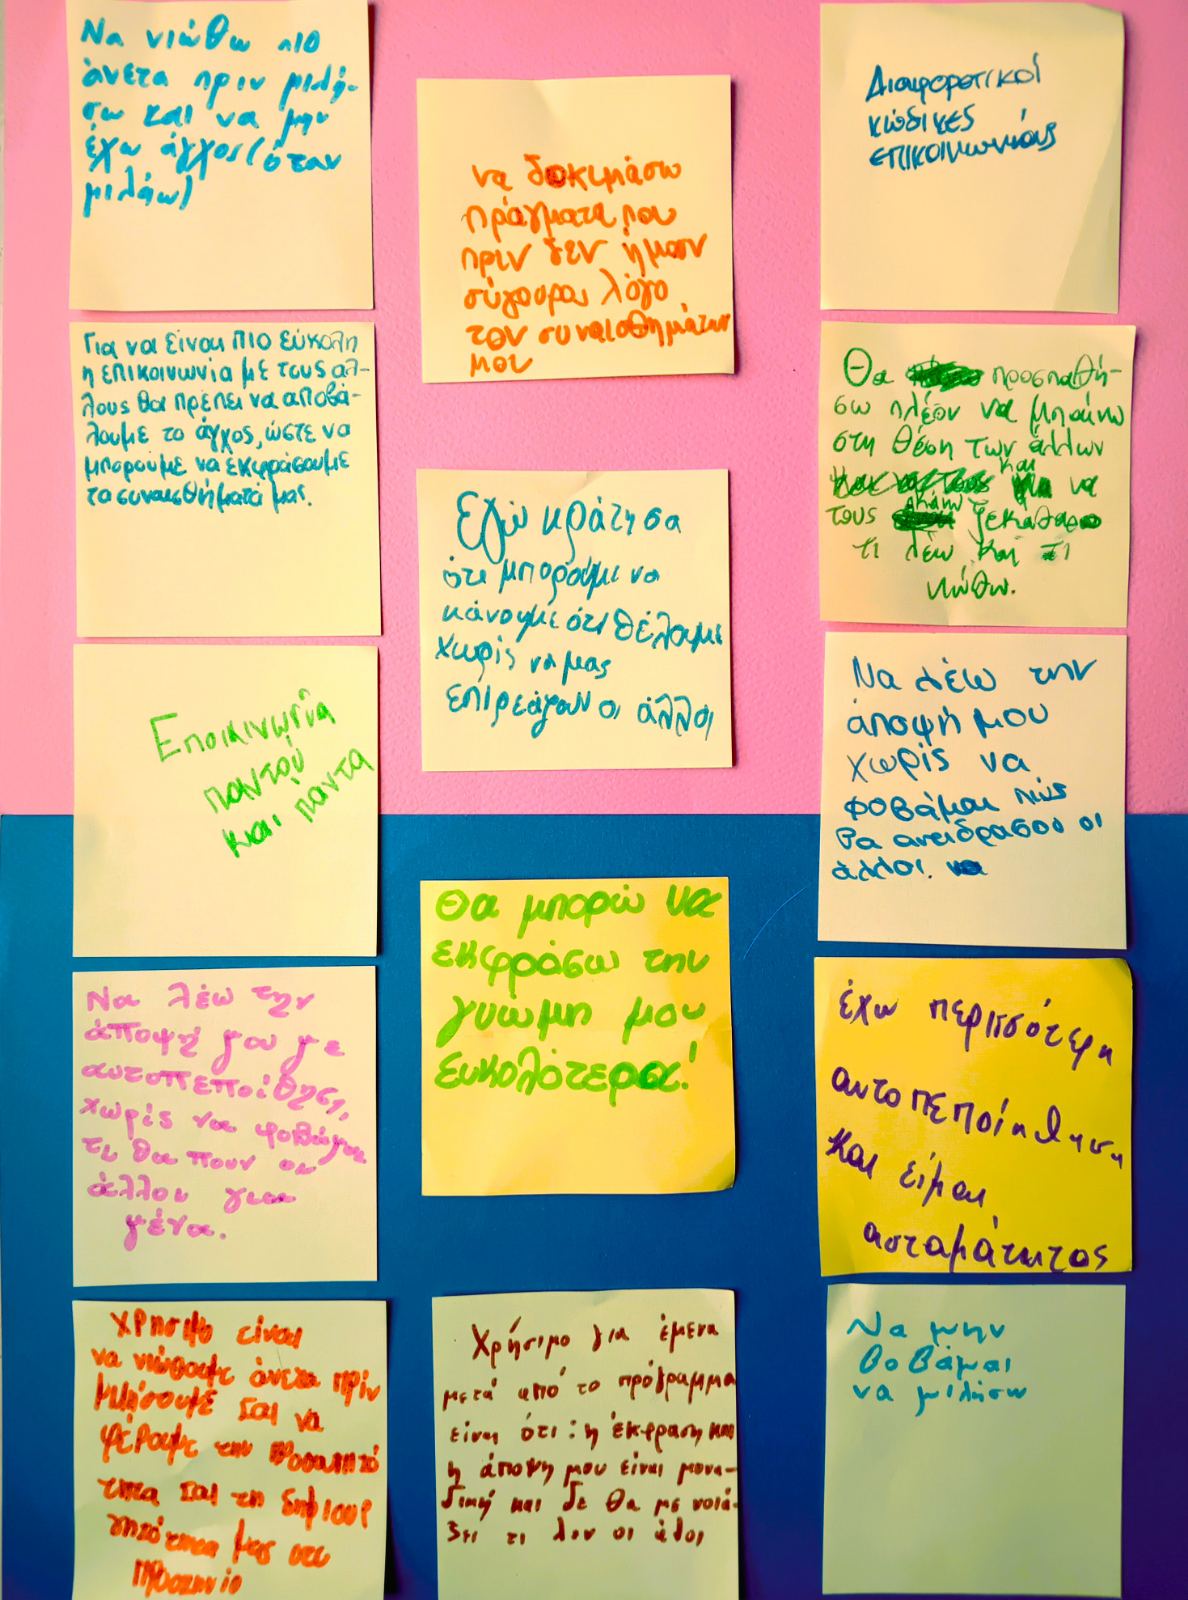 Να νιώθω πιο
άνετα πριν μιλή-
σω και να μην
έχω άγχος (όταν
μιλάω)
Για να είναι πιο εύκολη
η επικοινωνία με τους άλ-
λους θα πρέπει να αποβά-
λουμε το άγχος, ώστε να
μπορούμε να εκφράσουμε
τα συναισθήματά μας.
Εποικινωνία
παντού
και πάντα
Να λέω την
άποψή μου με
αυτοπεποίθηση,
χωρίς να φοβάμαι
τι θα πουν οι
άλλοι για
μένα.
Χρήσιμο είναι
να νιώθουμε άνετα πριν
μιλήσουμε και να
φέρουμε την
και τη δημιουρ
μας στο
να δοκιμάσω
πράγματα που
πριν δεν ήμουν
σύγουρα λόγο
τον συναισθημάτων
μου
Εγώ κράτησα
ότι μπορούμε να
κάνουμε ότι θέλουμε
χωρίς να μας
επιρεάζουν οι άλλοι
Θα μπορώ να
εκφράσω την
γνώμη μου
ευκολότερα!
Χρήσιμο για έμενα
μετά από το πρόγραμμα
είναι ότι: η έκφραση και
η άποψη μου είναι μονα-
δική και δε θα με νοιά-
ζει τι λεν οι άλοι
Διαφορετικοί
κώδικες
επικοινωνίας
Θα προσπαθή-
σω πλέον να μπαίνω
στη θέση των άλλων
και να
τους κάνω ξεκάθαρο
τι λέω και τι
νιώθω.
Να λέω την
άποψή μου
χωρίς να
φοβάμαι πώς
θα αντιδράσου οι
άλλοι. να
έχω περισσότερη
αυτοπεποίηθηση
και είμαι
ασταμάτητος
Να μην
φοβάμαι
να μιλήσω